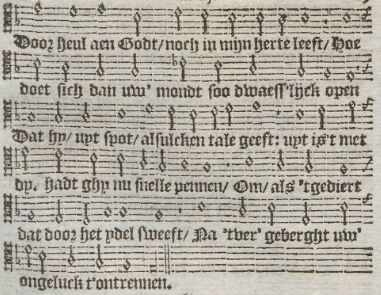 Door heul aen Godt/ noch in mijn herte leeft/ Hoe
doet sich dan uw' mondt soo dwaess'lijck open
Dat hy/ uyt spot/ alsulcken tale geeft: uyt is't met
dy. hadt ghy nu snelle pennen/ Om/ als 'tgediert
dat door het ydel sweeft/ Na 'tver' geberght uw'
ongeluck t'ontrennen.